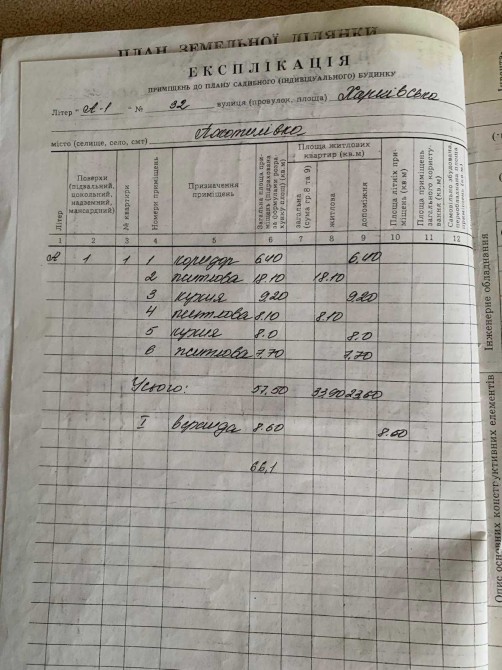 ПЛАН ЗЕМЕЛЬНОЇ ДІЛЯНКИ
ЕКСПЛІКАЦІЯ
ПРИМІЩЕНЬ ДО ПЛАНУ САДИБНОГО (ІНДИВІДУАЛЬНОГО) БУДИНКУ
Літер "А-1" № 32 вулиця (провулок, площа) Харківська
місто (селище, село, смт)
Літер
Поверхи (підвальний, цокольний, надземний, мансардний)
№ квартири
Номери приміщень
Призначення приміщень
Площа житлових квартир (кв.м)
загальна (сума гр 8 та 9)
житлова
допоміжна
Площа літніх приміщень (кв.м)
Площа приміщень загального користування (кв.м)
1 2 3 4 5 6 7 8 9 10 11 12
А 1 1 1 коридор 6.40 6.40
2 житлова 18.10 18.10
3 кухня 9.20 9.20
4 житлова 8.10 8.10
5 кухня 8.0 8.0
6 житлова 7.70 7.70
Усього: 57,50 33.90 23.60
I веранда 8.60 8.60
66,1
Інженерне обладнання
Опис основних конструктивних елементів